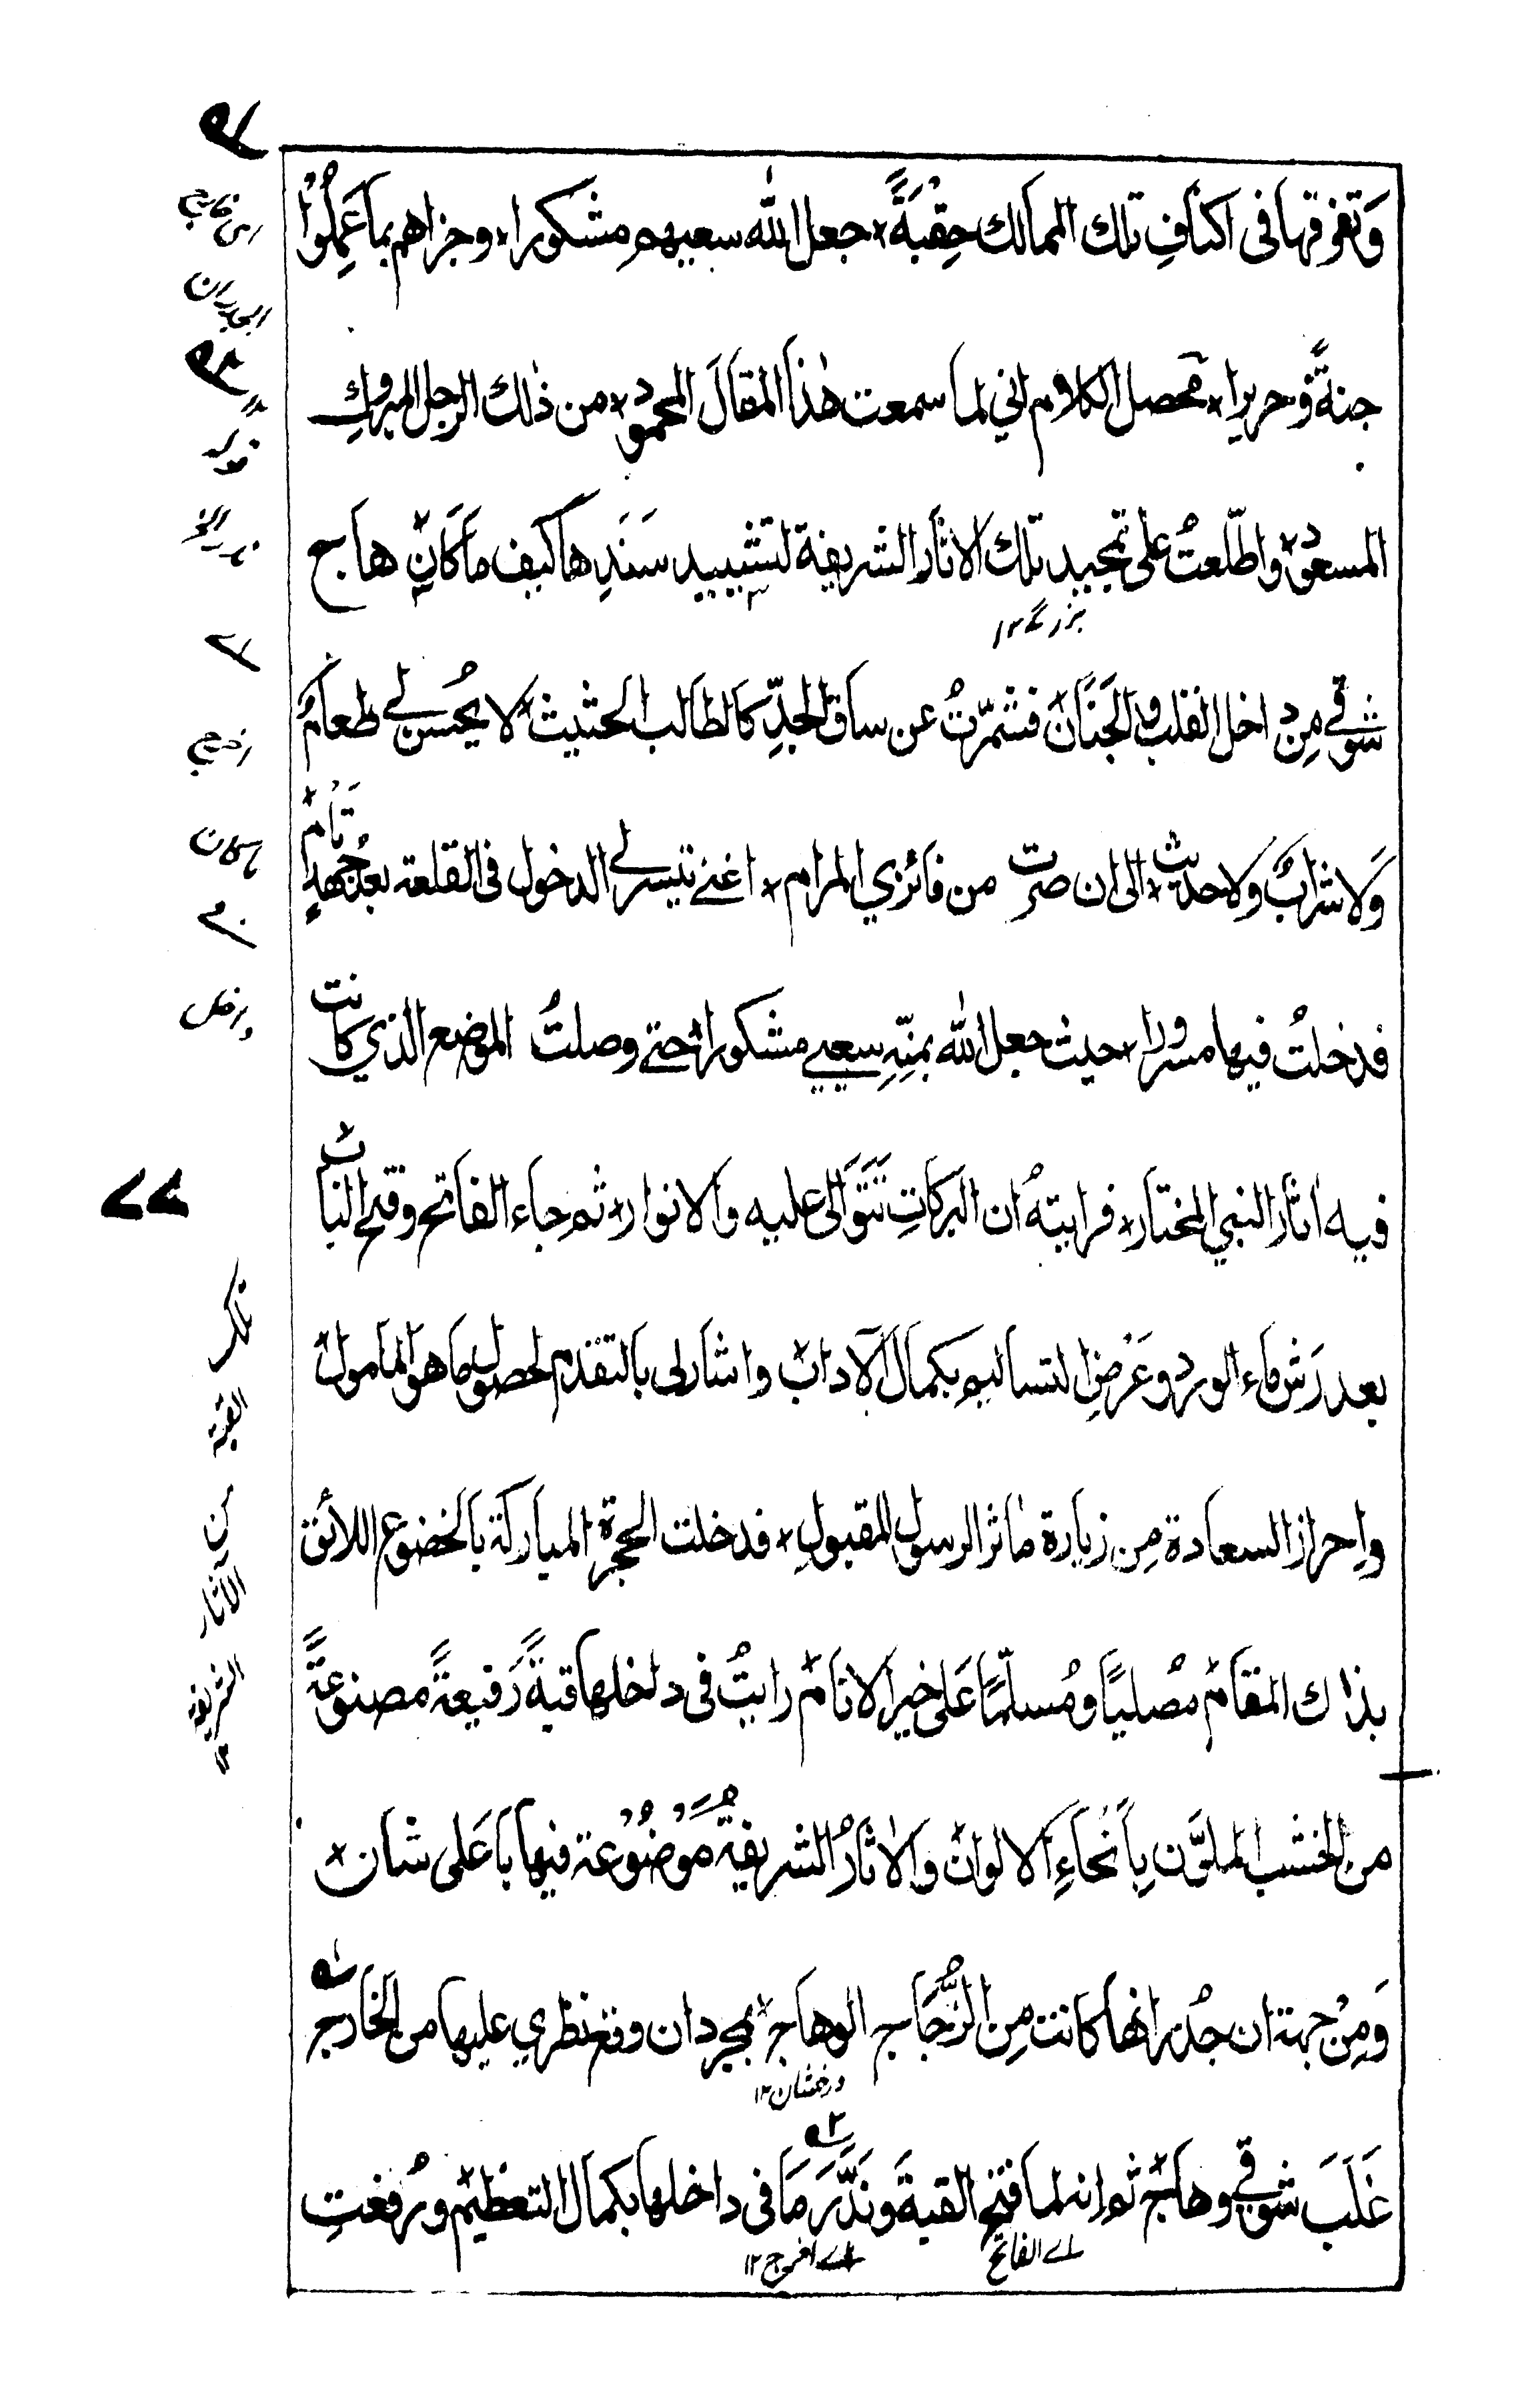 وَتفوقها فى اكنافِ تلك الممالك حِقْبَةً * جعل الله سعيهم مشكورا * وجزاهم بما عَمِلُوْا
جنةً وَّحريرا * فمحصل الكلام اني لما سمعت هٰذا المقالَ المحمود * من ذٰلك الرجل المبروكِ
المسعود * واطّلعتُ على تمجيد تلك الاثار الشريفة لتشييد سَنَدِها كيف ما كان * هاج
بزرگے ١٢
شوقي مِن داخل القلب والجَنَان * فشمّرتُ عن ساق الجدِّ كالطالب الحثيث * لا يحُسن لے طعامٌ
وَّلا شرابٌ ولا حديث * الى ان صرت من فائزي المرام * اعنے تيسر لے الدخول فى القلعة بعد جُهدٍ تَامْ *
فدخلتُ فيها مسرورا * حيث جعل الله بمنِّهِ سعيے مشكورا * حتے وصلتُ الموضع الذي كانت
فيه اٰثار النبي المختار * فرايتهُ ان البركاتِ تَتَوَالى عليه والانوار * ثم جاء الفاتح وفتح الباب *
بعد رَشِّ ماء الورد وعَرْضِ التساليم بكمال الآداب * واشار لى بالتقدم لحصول ما هو المامول *
واحراز السعادة مِن زيارة مٰاثر الرسول المقبول * فدخلت الحجرة المباركة بالخضوع اللائق
بذاك المقام * مُصليًا ومُسلّمًا عَلى خير الانام * رايتُ فى داخلها قبةً رَفيعةً مصنوعةً
من الخشب الملوَّن بِاَنْحَاءِ الالوان * والاٰثارُ الشريفةُ مَوْضُوْعة فيها باَعَلى شان *
وَمِنْ جهة ان جُدرانها كانت مِن الزُّجَاج الوهاج * بمجرد ان وقع نظري عليها من الخارج
درخشان ١٢
غَلَبَ شوقي وهاج * ثم انه لما فتح القبةَ ونَدَّرَ مَا فى داخلها بكمال التعظيم * ورُفعتِ
اے الفاتح
اے اخرج ١٢
الجدران
٧٧
القبة
عن
الآثار
الشريفة
١٢